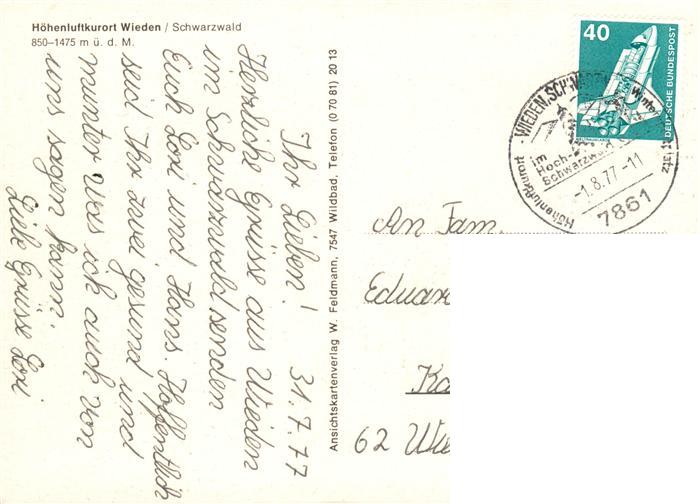 Höhenluftkurort Wieden / Schwarzwald
850–1475 m ü. d. M.
Ihr Lieben! 31.7.77
Herzliche Grüsse aus Wieden
im Schwarzwald senden
Euch Loxi und Hans. Hoffentlich
seid Ihr zwei gesund und
munter was ich auch von
uns sagen kann.
Liebe Grüsse Loxi
Ansichtskartenverlag W. Feldmann, 7547 Wildbad, Telefon (0 70 81) 20 13
40
DEUTSCHE BUNDESPOST
WIEDEN, SCHWARZW
Höhenluftkurort
im
Hoch-
Schwarzwald
-1.8.77-11
7861
An Fam.
Eduar
Ka
62 Wie